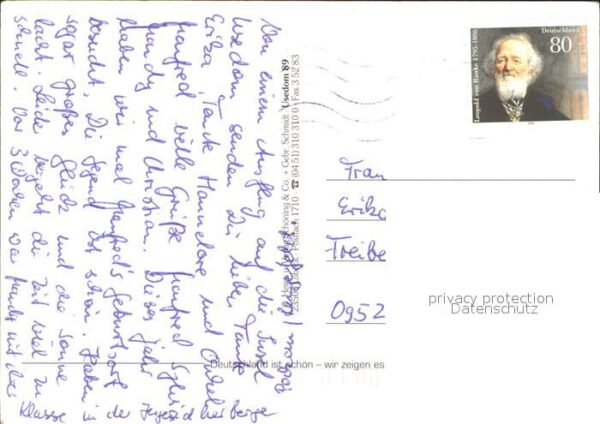 Von einem Ausflug auf die Insel
Usedom senden Dir lieber Tante
Erika, Tante Hannelore und Onkel
Manfred viele Grüße Manfred, Sylvia
Mandy und Christian. Dieses Jahr
haben wir mal Manfred's Geburtsort
besucht. Die Gegend ist schön. Haben
sogar großes Glück und die Sonne
lacht. Leider vergeht die Zeit viel zu
schnell. Vor 3 Wochen war Mandy mit der
Klasse in der Jugendherberge
Schöning & Co. + Gebr. Schmidt
Usedom 69
Postfach 1710 ☎ (04 51) 310 310 Fax 3 52 83
Deutschland ist schön – wir zeigen es
Deutschland
80
Leopold von Ranke 1795-1886
Frau
Erika
Treibe
0952
privacy protection
Datenschutz